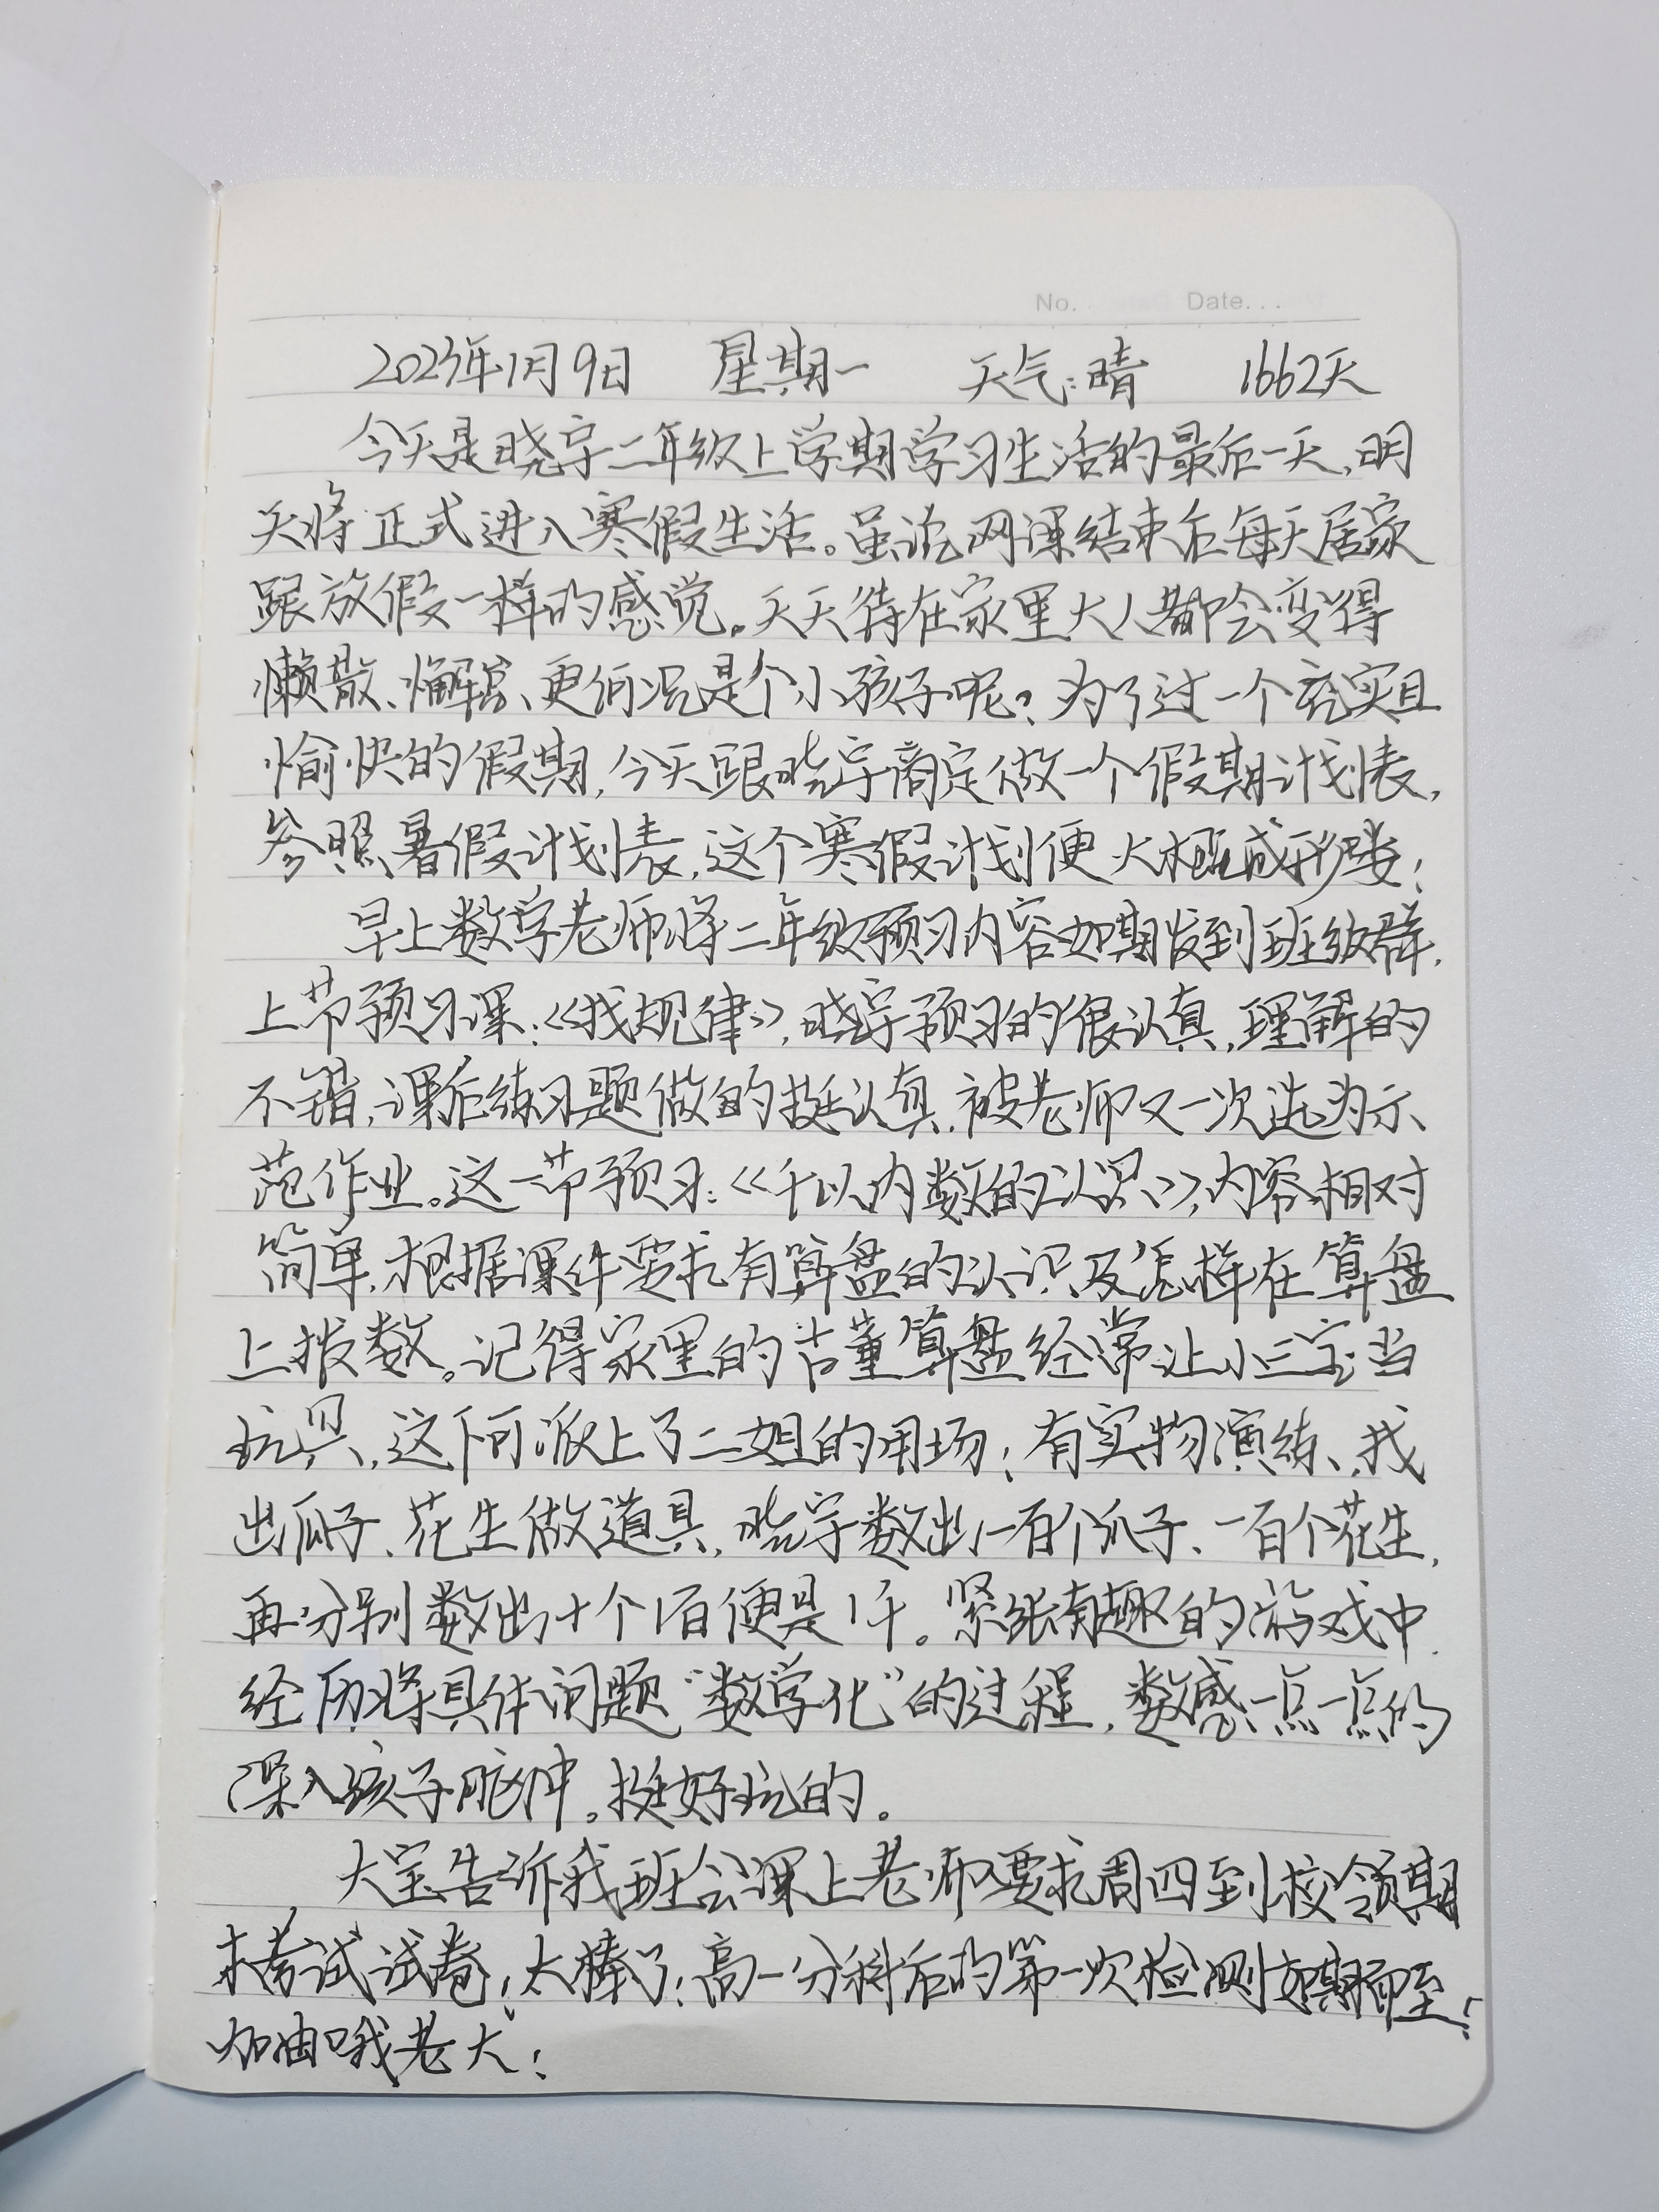 No. Date...
2023年1月9日 星期一 天气:晴 1662天
今天是晓宇二年级上学期学习生活的最后一天,明
天将正式进入寒假生活。虽说网课结束后每天居家
跟放假一样的感觉。天天待在家里大人都会变得
懒散、懈怠、更何况是个小孩子呢?为了过一个充实且
愉快的假期,今天跟晓宇商定做一个假期计划表,
参照暑假计划表,这个寒假计划便大概成形喽!
早上数学老师将二年级预习内容如期发到班级群,
上节预习课:《找规律》,晓宇预习的很认真,理解的
不错,课后练习题做的挺认真,被老师又一次选为示
范作业。这一节预习:《千以内数的认识》,内容相对
简单,根据课件要求有算盘的认识及怎样在算盘
上拨数。记得家里的古董算盘经常让小三宝当
玩具,这下可派上了二姐的用场!有实物演练、找
出瓜子、花生做道具,晓宇数出一百个瓜子、一百个花生,
再分别数出十个1百便是1千。紧张有趣的游戏中
经历将具体问题“数学化”的过程,数感一点一点的
深入孩子脑中。挺好玩的。
大宝告诉我班会课上老师要求周四到校领期
末考试试卷!太棒了!高一分科后的第一次检测如期而至!
加油哦老大!